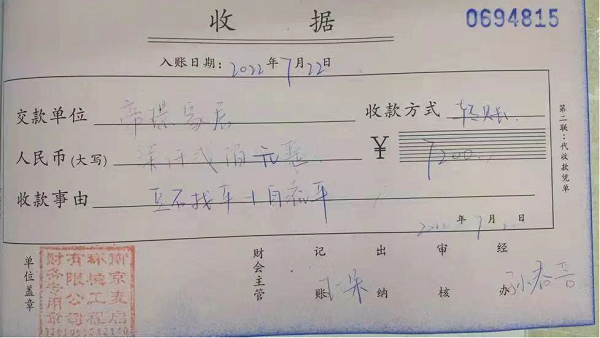 收据
0694815
入账日期：2022年7月22日
交款单位 帝璟家居 收款方式 转账
人民币(大写) 柒仟贰佰元整 ¥ 7200
收款事由 豆石找平+自流平
年7月
第二联：代收款凭单
单位盖章
财会主管 记账 出纳 审核 经办
南京麦启
环境工程
有限公司
财务专用章